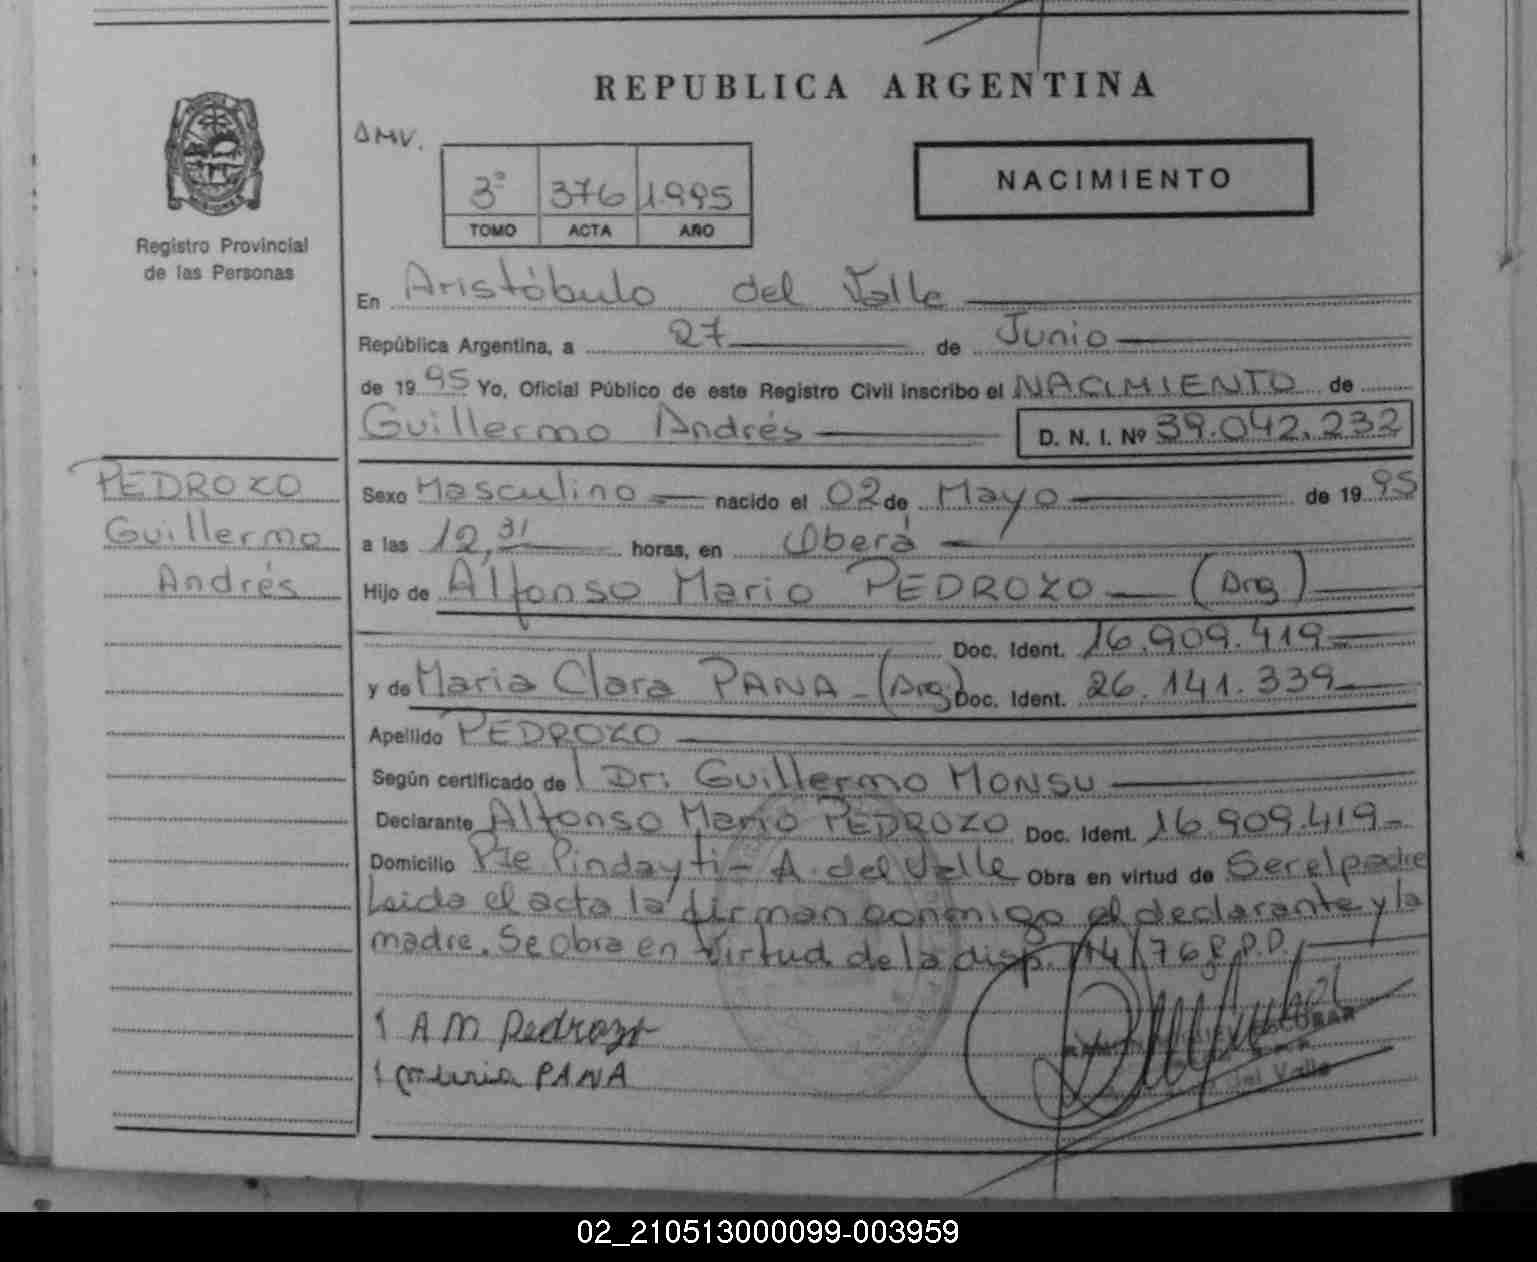 REPUBLICA ARGENTINA
MISIONES
Registro Provincial
de las Personas
AMV.
3º 376 1.995
TOMO ACTA AÑO
NACIMIENTO
En Aristóbulo del Valle
República Argentina, a 27 de Junio
de 19 95 Yo, Oficial Público de este Registro Civil inscribo el NACIMIENTO de
Guillermo Andrés D. N. I. Nº 39.042.232
PEDROZO
Guillermo
Andrés
Sexo Masculino nacido el 02 de Mayo de 19 95
a las 12,31 horas, en Oberá
Hijo de Alfonso Mario PEDROZO (Arg)
Doc. Ident. 16.909.419
y de Maria Clara PANA - (Arg) Doc. Ident. 26.141.339
Apellido PEDROZO
Según certificado de l Dr: Guillermo MONSU
Declarante Alfonso Mario PEDROZO Doc. Ident. 16.909.419-
Domicilio Pje Pindayti - A. del Valle Obra en virtud de Ser el padre
Leida el acta la firman conmigo el declarante y la
madre. Se obra en virtud de la disp. 14/76 R.P.P.
A M Pedrozo
maria PANA
ESCOBAR
del Valle
02_210513000099-003959